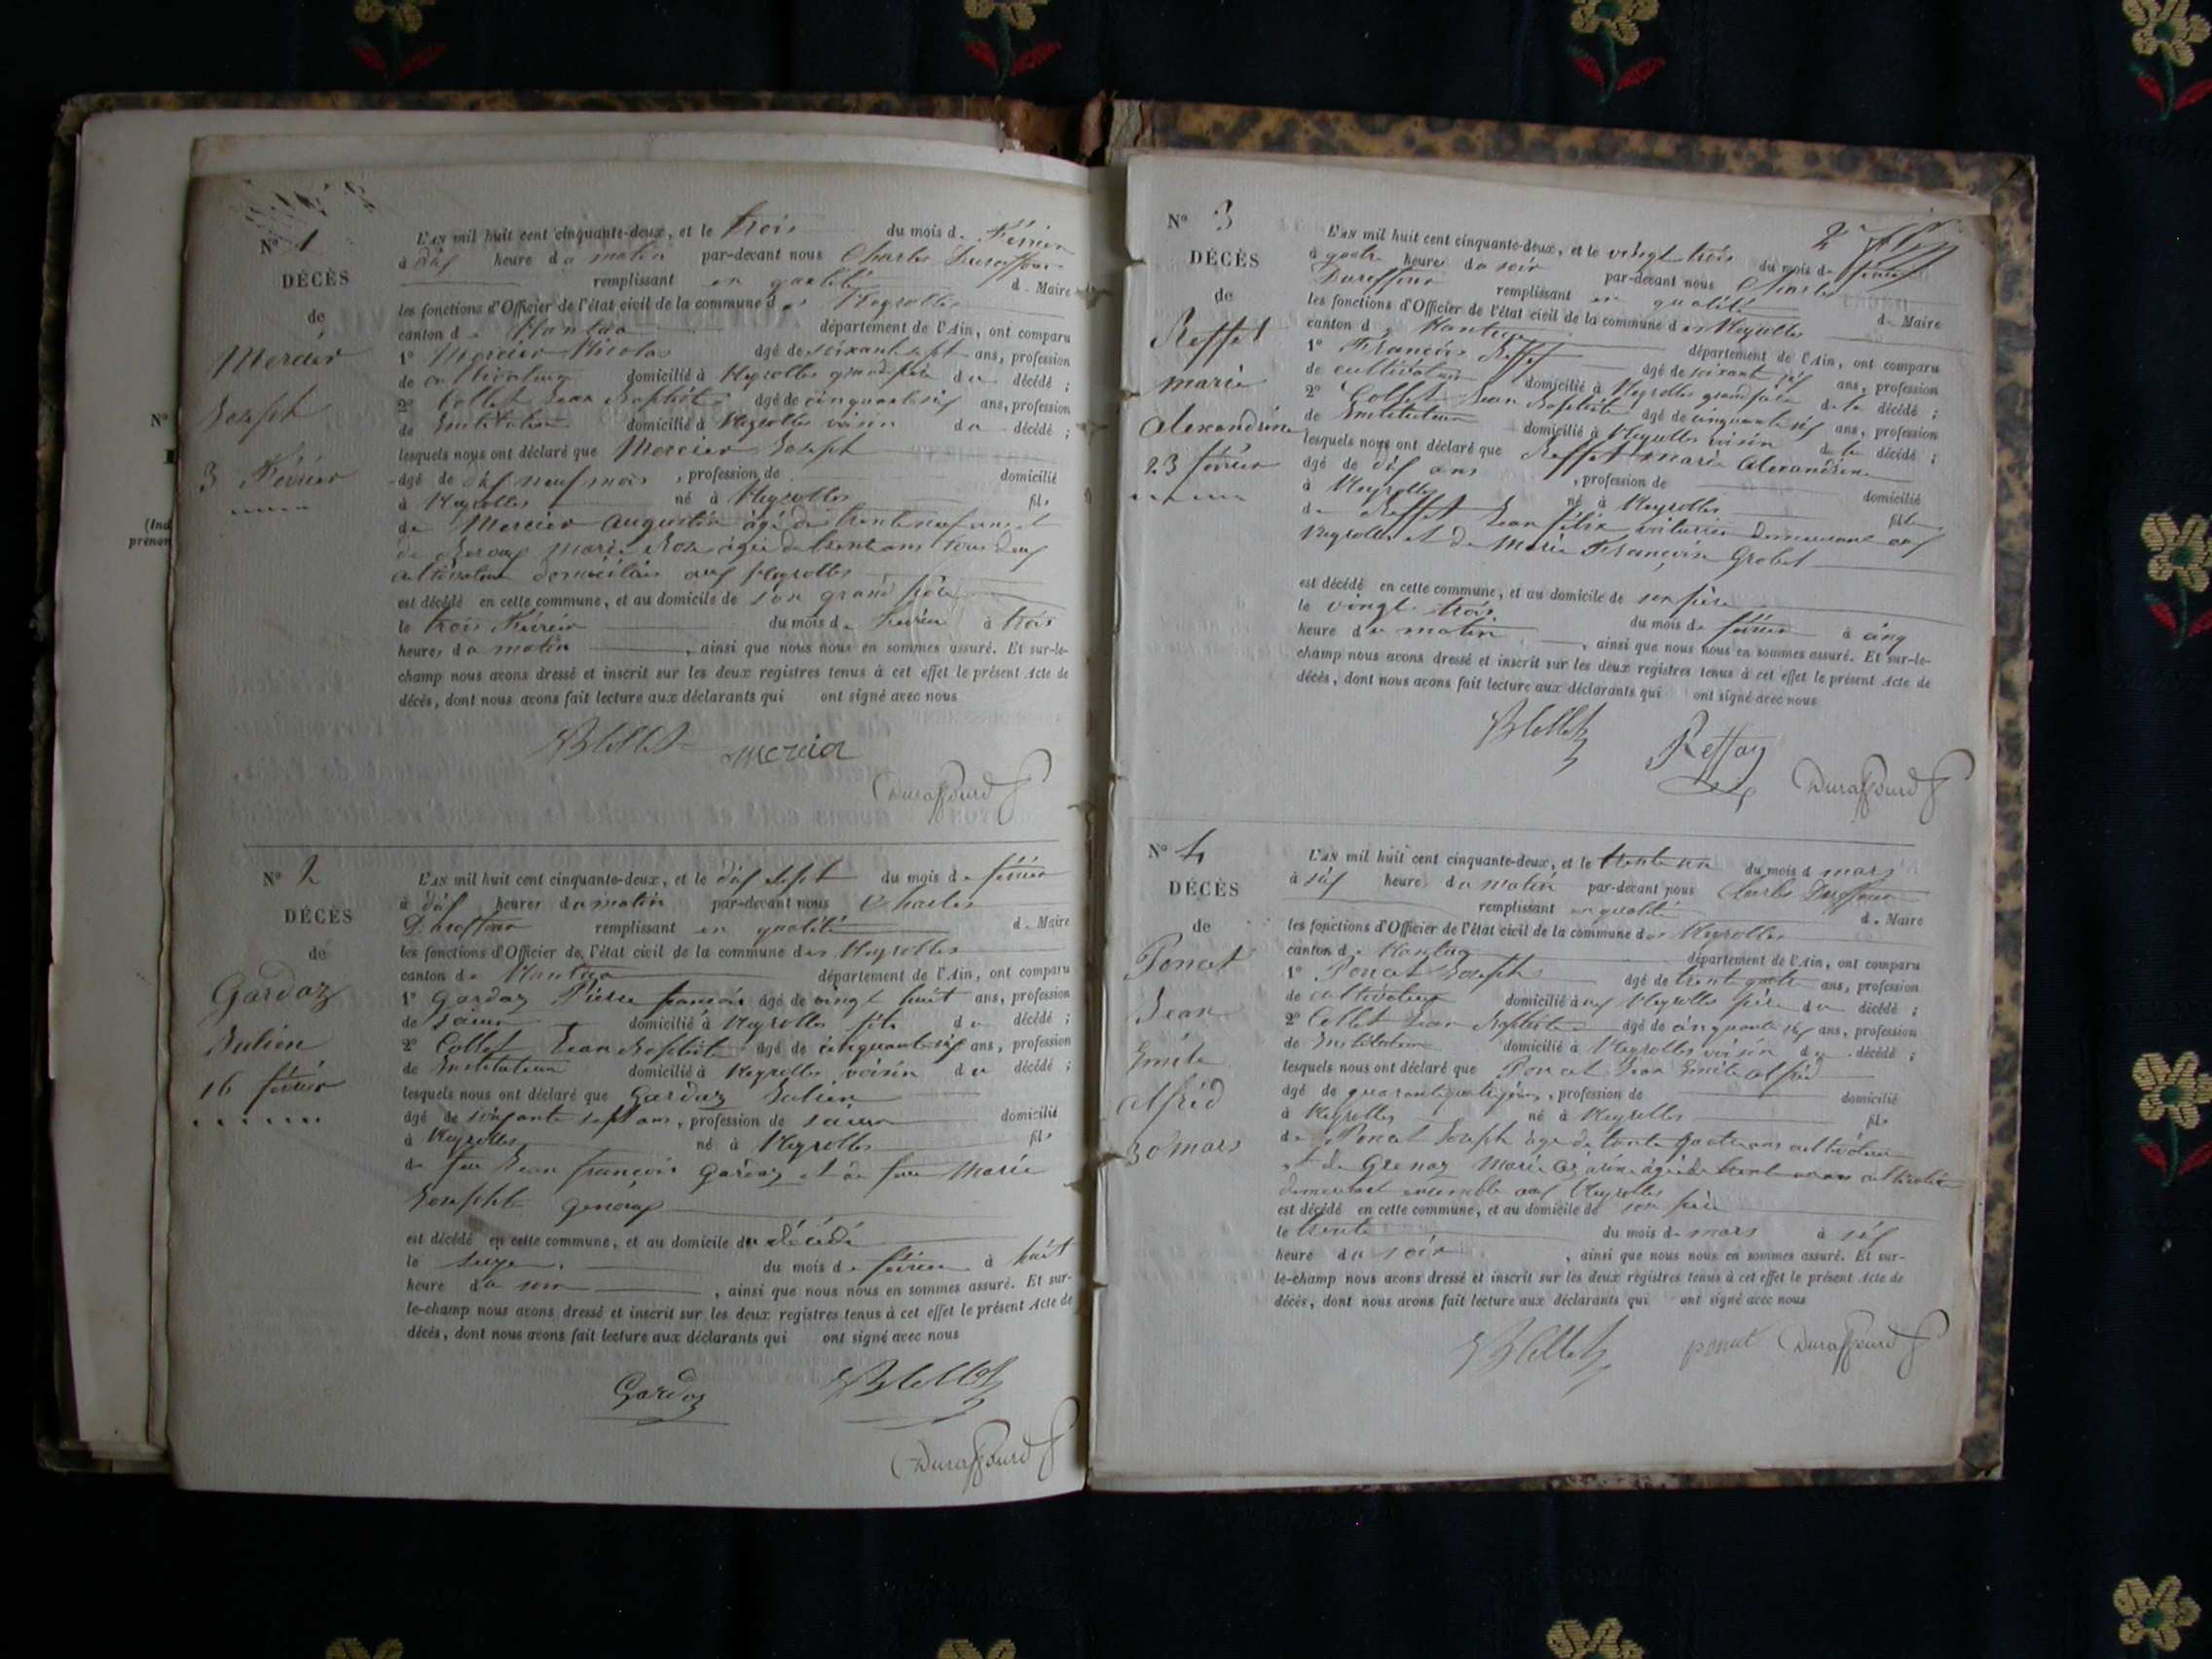 N° 1
DÉCÈS
de
Mercier
Joseph
3 Février
L'AN mil huit cent cinquante-deux, et le trois du mois de Février
à dix heure du matin par-devant nous Charles Duraffour
remplissant en qualité de Maire
les fonctions d'Officier de l'état civil de la commune des Neyrolles
canton de Nantua département de l'Ain, ont comparu
1° Mercier Nicolas âgé de soixante sept ans, profession
de cultivateur domicilié à Neyrolles grand père du décédé ;
2° Collet Jean Baptiste âgé de cinquante six ans, profession
de Instituteur domicilié à Neyrolles voisin du décédé ;
lesquels nous ont déclaré que Mercier Joseph
âgé de dix neuf mois, profession de domicilié
à Neyrolles né à Neyrolles fils
de Mercier Augustin âgé de trente neuf ans et
de marie Rose âgée de trente ans tous deux
cultivateurs domiciliés aux Neyrolles
est décédé en cette commune, et au domicile de son grand père
le trois Février du mois de Février à trois
heures du matin, ainsi que nous nous en sommes assuré. Et sur-le-
champ nous avons dressé et inscrit sur les deux registres tenus à cet effet le présent Acte de
décès, dont nous avons fait lecture aux déclarants qui ont signé avec nous
JBCollet mercier
Duraffourd
N° 2
DÉCÈS
de
Gardaz
Julien
16 février
L'AN mil huit cent cinquante-deux, et le dix sept du mois de février
à dix heures du matin par-devant nous Charles
Duraffour remplissant en qualité de Maire
les fonctions d'Officier de l'état civil de la commune des Neyrolles
canton de Nantua département de l'Ain, ont comparu
1° Gardaz Pierre françois âgé de vingt huit ans, profession
de scieur domicilié à Neyrolles fils du décédé ;
2° Collet Jean Baptiste âgé de cinquante six ans, profession
de Instituteur domicilié à Neyrolles voisin du décédé ;
lesquels nous ont déclaré que Gardaz Julien
âgé de soixante sept ans, profession de scieur domicilié
à Neyrolles né à Neyrolles fils
de feu Jean françois Gardaz et de feue Marie
Josephte
est décédé en cette commune, et au domicile du décédé
le seize du mois de février à huit
heure du soir, ainsi que nous nous en sommes assuré. Et sur-
le-champ nous avons dressé et inscrit sur les deux registres tenus à cet effet le présent Acte de
décès, dont nous avons fait lecture aux déclarants qui ont signé avec nous
Gardaz JBCollet
Duraffourd
N° 3
DÉCÈS
de
Reffet
marie
Alexandrine
23 février
L'AN mil huit cent cinquante-deux, et le vingt trois du mois de février
à quatre heures du soir par-devant nous Charles
Duraffour remplissant en qualité de Maire
les fonctions d'Officier de l'état civil de la commune des Neyrolles
canton de Nantua département de l'Ain, ont comparu
1° François Reffet âgé de soixante six ans, profession
de cultivateur domicilié à Neyrolles grand père de la décédé ;
2° Collet Jean Baptiste âgé de cinquante six ans, profession
de Instituteur domicilié à Neyrolles voisin de la décédé ;
lesquels nous ont déclaré que Reffet marie Alexandrine
âgé de dix ans, profession de domicilié
à Neyrolles né à Neyrolles fille
de Reffet Jean félix voiturier demeurant aux
Neyrolles et de Marie Françoise Grobet
est décédé en cette commune, et au domicile de son père
le vingt trois du mois de février à cinq
heure du matin, ainsi que nous nous en sommes assuré. Et sur-le-
champ nous avons dressé et inscrit sur les deux registres tenus à cet effet le présent Acte de
décès, dont nous avons fait lecture aux déclarants qui ont signé avec nous
JBCollet
Duraffourd
N° 4
DÉCÈS
de
Ponat
Jean
Emile
alfred
30 mars
L'AN mil huit cent cinquante-deux, et le trente un du mois d mars
à six heures du matin par-devant nous Charles Duraffour
remplissant en qualité de Maire
les fonctions d'Officier de l'état civil de la commune des Neyrolles
canton de Nantua département de l'Ain, ont comparu
1° Ponat Joseph âgé de trente quatre ans, profession
de cultivateur domicilié à aux Neyrolles père du décédé ;
2° Collet Jean Baptiste âgé de cinquante six ans, profession
de Instituteur domicilié à Neyrolles voisin du décédé ;
lesquels nous ont déclaré que Ponat Jean Emile alfred
âgé de quarante quatre jours, profession de domicilié
à Neyrolles né à Neyrolles fils
de Ponat Joseph âgé de trente quatre ans cultivateur
et de Grenaz Marie âgée de
demeurant ensemble aux Neyrolles
est décédé en cette commune, et au domicile de son père
le trente du mois de mars à six
heure du soir, ainsi que nous nous en sommes assuré. Et sur-
le-champ nous avons dressé et inscrit sur les deux registres tenus à cet effet le présent Acte de
décès, dont nous avons fait lecture aux déclarants qui ont signé avec nous
JBCollet ponat Duraffourd